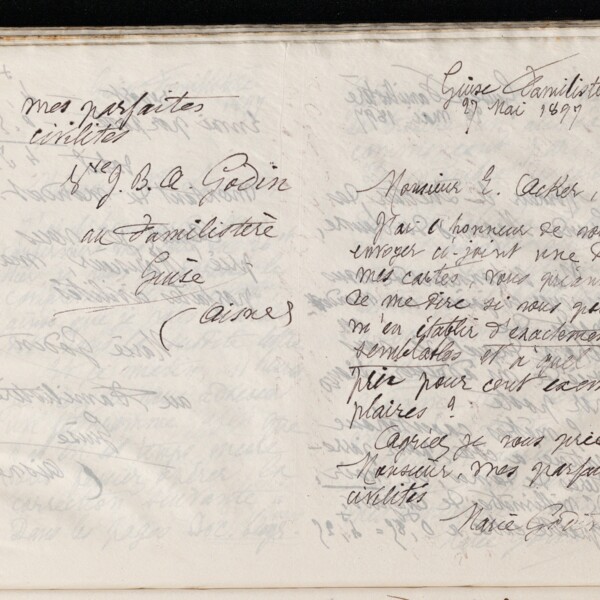 mes parfaites
civilités
Vve J. B. A. Godin
au Familistère
Guise
(Aisne)
Guise Familistè
27 Mai 1897
Monsieur E. Acker,
J'ai l'honneur de vo
envoyer ci-joint une d
mes cartes, vous pria
de me dire si vous po
m'en établir d'exacteme
semblables et à quel
prix pour cent exem
plaires ?
Agréez je vous prie
Monsieur, mes parfai
civilités
Marie Godin